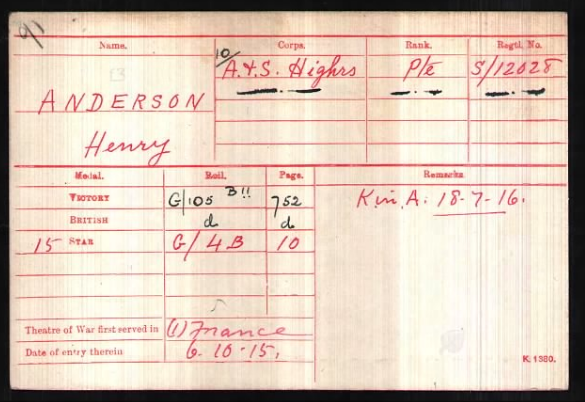 91
Name. Corps. Rank. Regtl. No.
10/ A.&S. Highrs Pte S/12028
ANDERSON
Henry
Medal. Roll. Page. Remarks
VICTORY G/105 B11 752 K in A. 18-7-16.
BRITISH do do
15 STAR G/4B 10
Theatre of War first served in (1) France
Date of entry therein 6-10-15.
K. 1380.